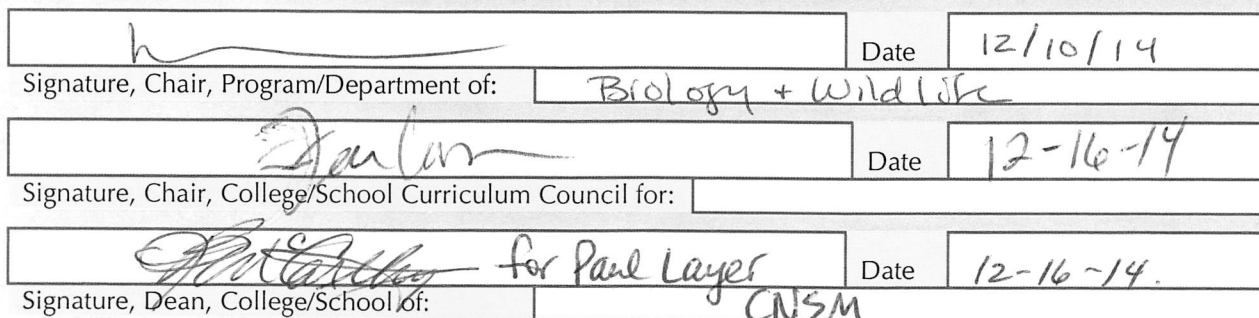 Date 12/10/14
Signature, Chair, Program/Department of: Biology + Wildlife
Date 12-16-14
Signature, Chair, College/School Curriculum Council for:
for Paul Layer Date 12-16-14.
Signature, Dean, College/School of: CNSM